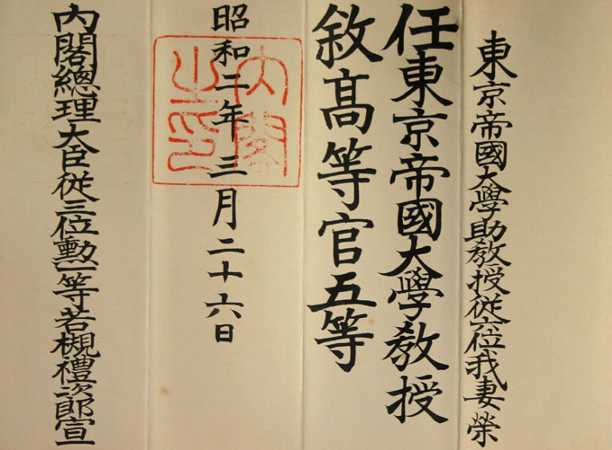 東京帝國大學助教授從六位我妻榮
任東京帝國大學教授
敘高等官五等
昭和二年三月二十六日
内閣之印
内閣總理大臣從三位勳一等若槻禮次郎宣